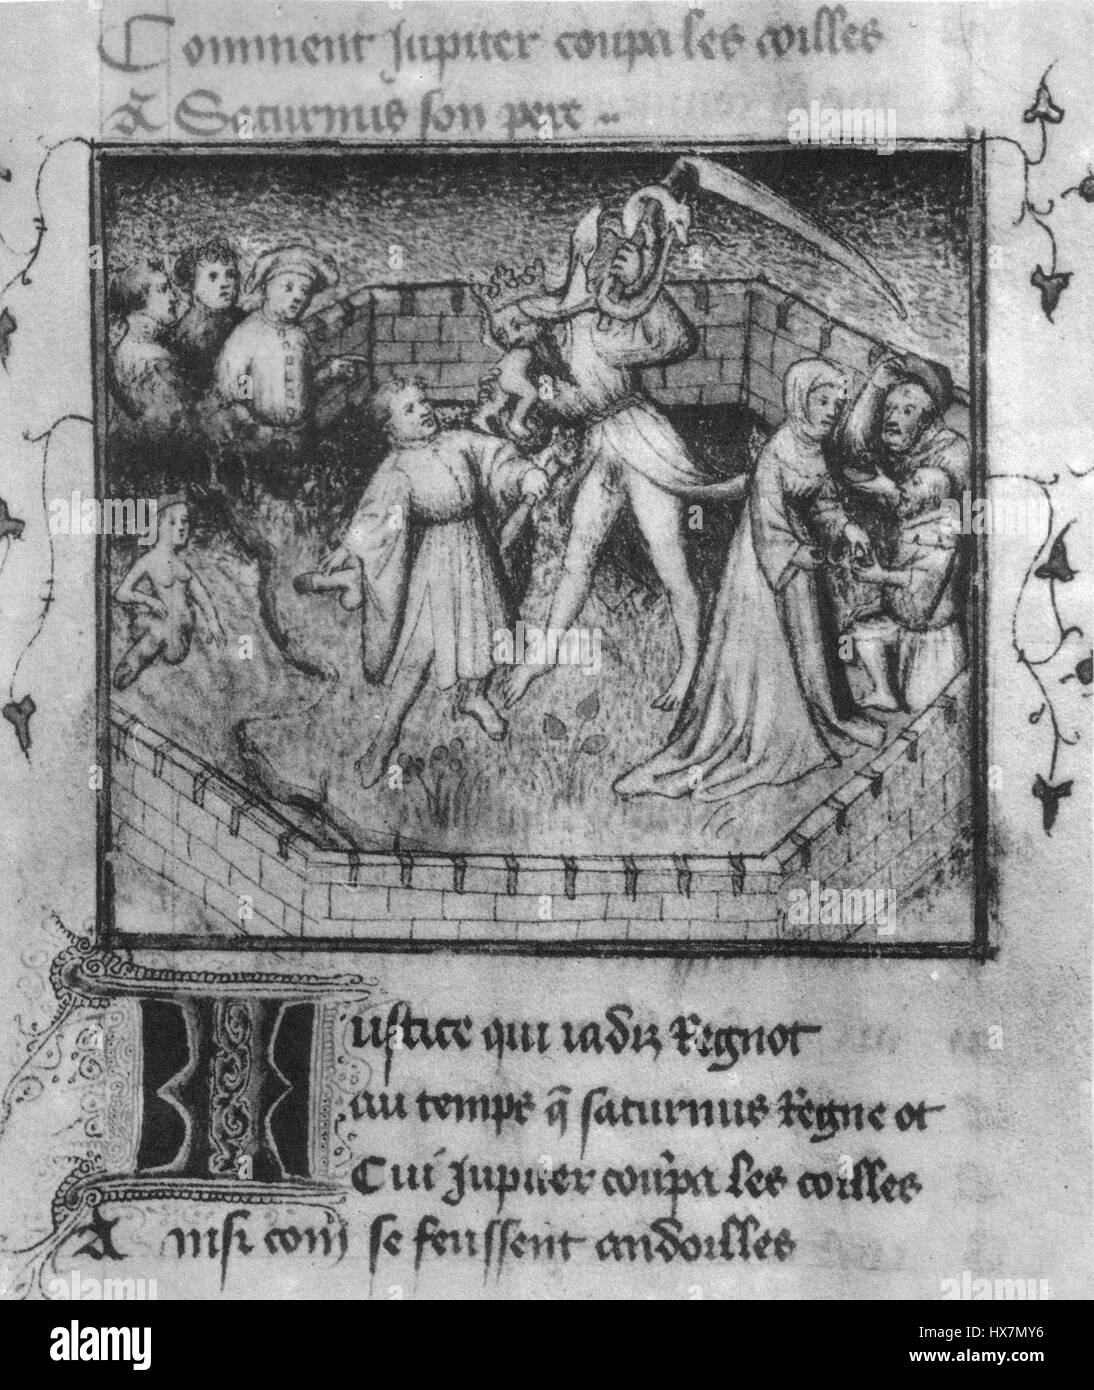 Comment Jupiter coupa les coilles
A Saturnus son pere
Justice qui iadiz Regnot
au temps q̃ saturnus Regne ot
Cui Jupiter coup̃a les coilles
Ainsi com̃ se feussent andoilles
alamy
alamy stock photo
HX7MY6
www.alamy.com